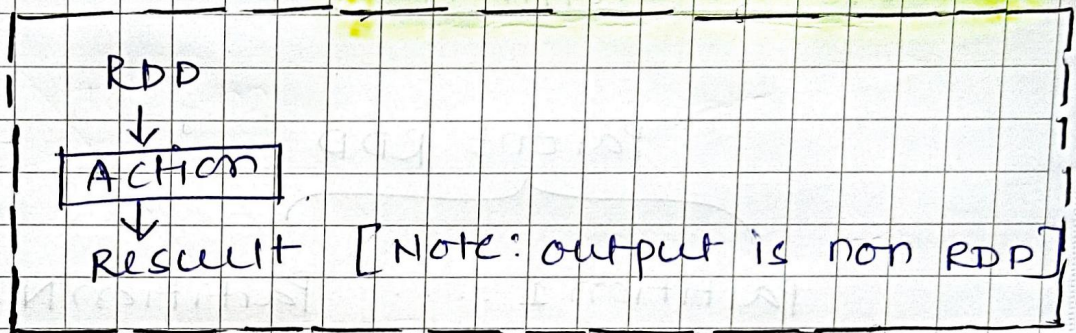 RDD
↓
Action
↓
Result [Note: output is non RDD]